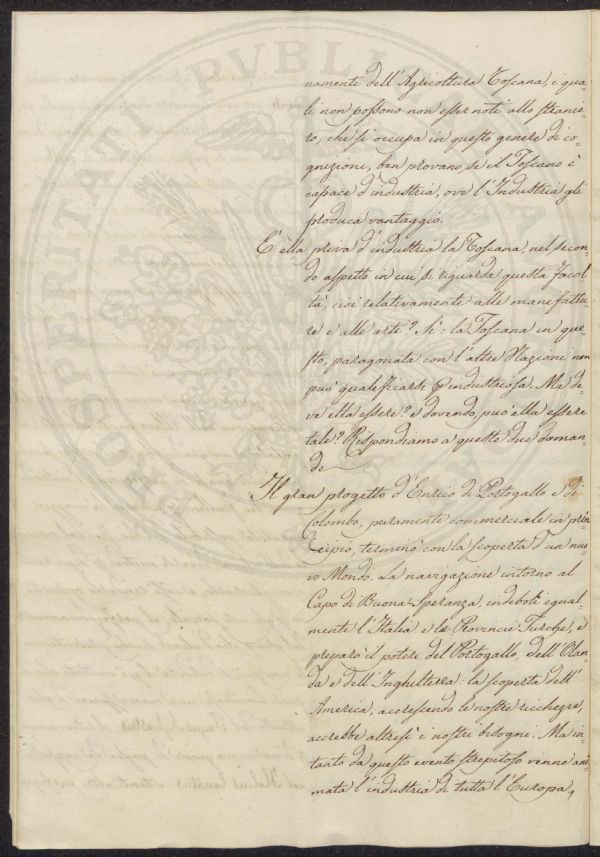 namente dell'Agricoltura Toscana, i qua-
li non possono non esser noti allo stranie-
ro, che si occupa in questo genere di co-
gnizioni, ben provano, se il Toscano è
capace d'industria, ove l'Industria gli
produca vantaggio.
E' ella priva d'industria la Toscana, nel secon-
do aspetto in cui si riguarda questa facol-
tà, cioè relativamente alle manifattu-
re e alle arti? Sì: la Toscana in que-
sto, paragonata con l'altre Nazioni non
può qualificarsi industriosa. Ma de-
ve ella essere? e dovendo, può ella essere
tale? Rispondiamo a queste due doman-
de
Il gran progetto d'Enrico di Portogallo e di
Colombo, puramente commerciale in prin-
cipio, terminò con la scoperta d'un nuo-
vo Mondo. La navigazione intorno al
Capo di Buona-Speranza, indebolì egual-
mente l'Italia e le Provincie Turche, e
preparò il potere del Portogallo, dell'Olan-
da e dell'Inghilterra: la scoperta dell'
America, accrescendo le nostre ricchezze,
accrebbe altresì i nostri bisogni. Ma in-
tanto da questo evento strepitoso venne ani-
mata l'industria di tutta l'Europa,
PVBLI